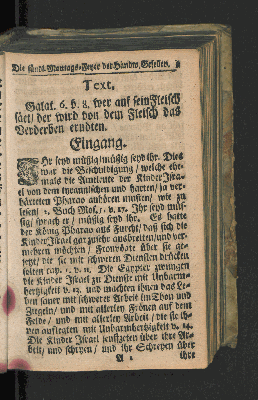 Die sünd. Montags-Feyer der Handw. Gesellen.
Text.
Galat. 6. v. 8. wer auf sein Fleisch
säet/ der wird von dem Fleisch das
Verderben erndten.
Eingang.
Ihr seyd müßig/ müßig seyd ihr. Dies
war die Beschuldigung/ welche ehe-
mals die Amtleute der Kinder Isra-
el von dem tyrannischen und harten/ ja ver-
härteten Pharao anhören musten/ wie zu
lesen/ 2. Buch Mos. 5. v. 17. Ihr seyd müs-
sig/ sprach er/ müßig seyd ihr. Es hatte
der König Pharao aus Furcht/ daß sich die
Kinder Israel gar zu sehr ausbreiten/ und ver-
mehren möchten/ Frohnvögte über sie ge-
setzt/ die sie mit schweren Diensten drücken
solten cap. 1. v. 11. Die Egypter zwungen
die Kinder Israel zu Dienste mit Unbarm-
hertzigkeit v. 13. und machten ihnen das Le-
ben sauer mit schwerer Arbeit im Thon und
Ziegeln/ und mit allerley Frönen auf dem
Felde/ und mit allerley Arbeit/ die sie ih-
nen auflegten mit Unbarmhertzigkeit v. 14.
Die Kinder Israel seufftzeten über ihre Ar-
beit/ und schryen/ und ihr Schreyen über
A 2 ihre